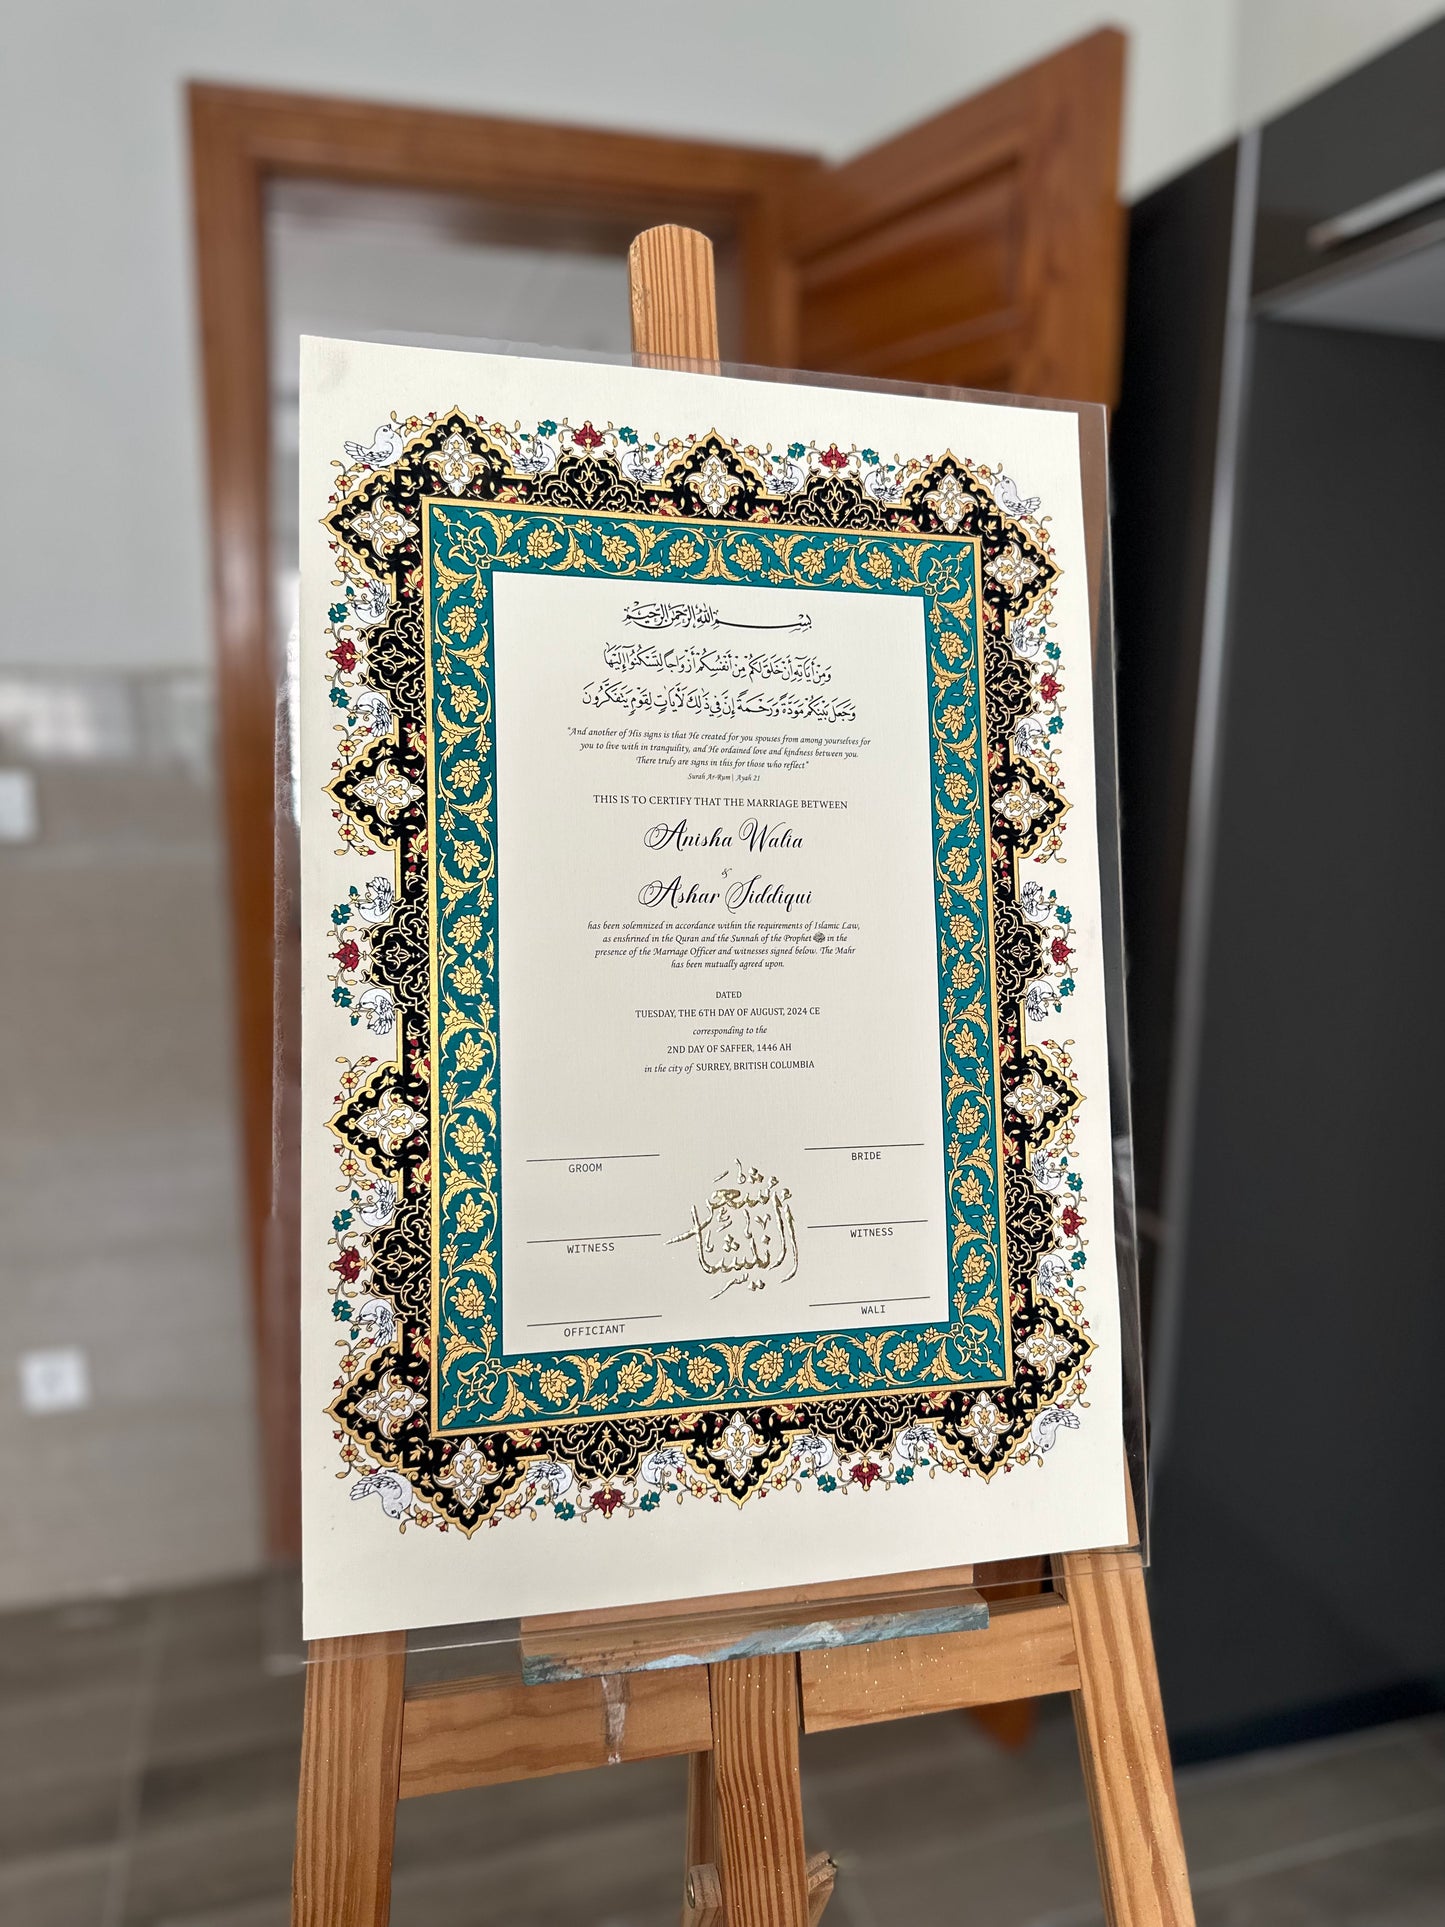 بسم الله الرحمن الرحيم
وَمِنْ آيَاتِهِ أَنْ خَلَقَ لَكُمْ مِنْ أَنْفُسِكُمْ أَزْوَاجًا لِتَسْكُنُوا إِلَيْهَا
وَجَعَلَ بَيْنَكُمْ مَوَدَّةً وَرَحْمَةً إِنَّ فِي ذَلِكَ لَآيَاتٍ لِقَوْمٍ يَتَفَكَّرُونَ
"And another of His signs is that He created for you spouses from among yourselves for
you to live with in tranquility, and He ordained love and kindness between you.
There truly are signs in this for those who reflect"
Surah Ar-Rum | Ayah 21
THIS IS TO CERTIFY THAT THE MARRIAGE BETWEEN
Anisha Walia
&
Ashar Siddiqui
has been solemnized in accordance within the requirements of Islamic Law,
as enshrined in the Quran and the Sunnah of the Prophet ﷺ in the
presence of the Marriage Officer and witnesses signed below. The Mahr
has been mutually agreed upon.
DATED
TUESDAY, THE 6TH DAY OF AUGUST, 2024 CE
corresponding to the
2ND DAY OF SAFFER, 1446 AH
in the city of SURREY, BRITISH COLUMBIA
GROOM
BRIDE
WITNESS
WITNESS
OFFICIANT
WALI